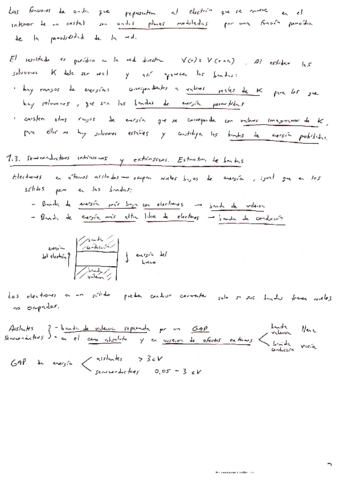 Las funciones de onda que representan al electrón que se mueve en el
interior de un cristal son ondas planas moduladas por una función periódica
de la periodicidad de la red.
El resultado es periódico en la red directa V(r) = V(r+n). Al estudiar las
soluciones K debe ser real y así aparecen las bandas:
- hay rangos de energías correspondientes a valores reales de K para los que
hay soluciones, que son las bandas de energía permitidas
- existen otros rangos de energía que se corresponde con valores imaginarios de K,
para ellos no hay soluciones estables y constituye las bandas de energía prohibidas.
1.3. Semiconductores intrínsecos y extrínsecos. Estructura de bandas
Electrones en átomos aislados ocupan niveles bajos de energía, igual que en los
sólidos pero en las bandas:
- Banda de energía más baja con electrones → banda de valencia
- Banda de energía más alta libre de electrones → banda de conducción
banda
conducción
energía
del electrón
energía del
hueco
banda
valencia
Los electrones en un sólido pueden conducir corriente solo si sus bandas tienen niveles
no ocupados.
Aislantes - banda de valencia separada por un GAP banda valencia llena
semiconductores - en el cero absoluto y en ausencia de efectos externos banda conducción vacía
GAP de energía aislantes > 3 eV
semiconductores 0,05 - 3 eV